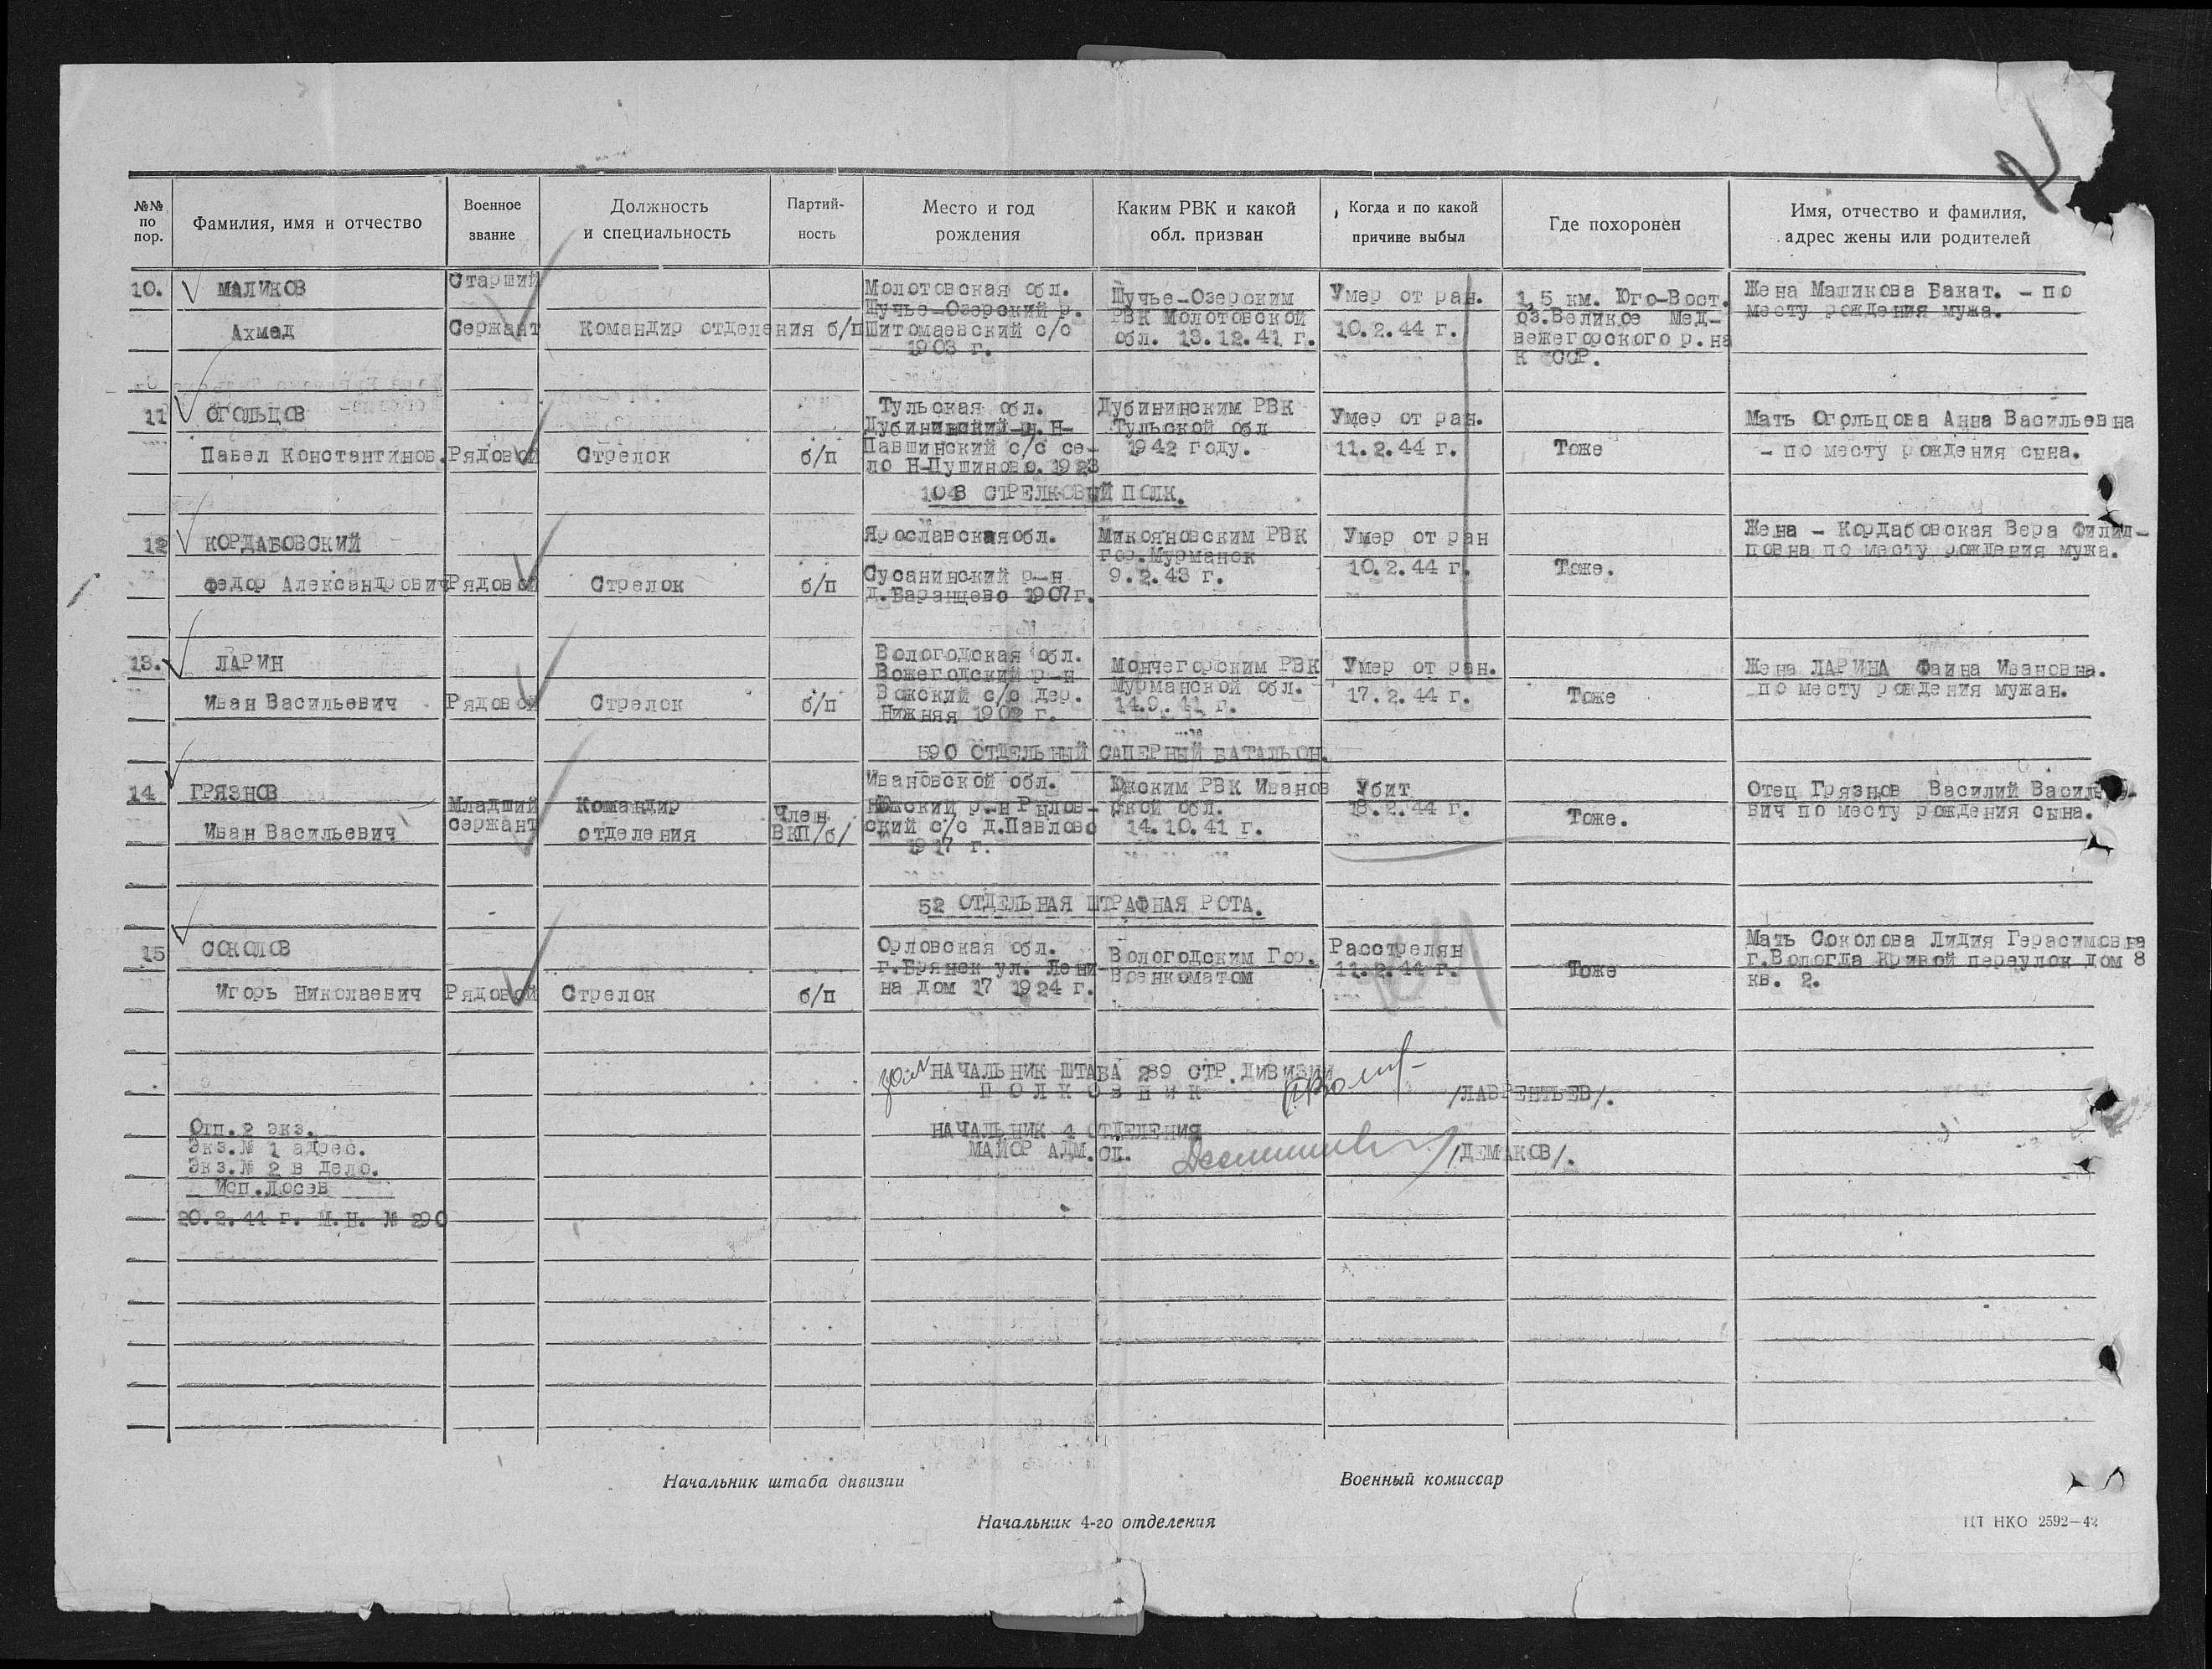 №№ по пор.
Фамилия, имя и отчество
Военное звание
Должность и специальность
Партий- ность
Место и год рождения
Каким РВК и какой обл. призван
Когда и по какой причине выбыл
Где похоронен
Имя, отчество и фамилия, адрес жены или родителей
10.
МАЛИКОВ
Ахмед
Старший
Сержант
Командир отделения
б/п
Молотовская обл.
Щучье-Озерский р.
Шитомаевский с/с
1903 г.
Щучье-Озерским
РВК Молотовской
обл. 13.12.41 г.
Умер от ран.
10.2.44 г.
1,5 км. Юго-Вост.
оз.Великое Мед-
вежегорского р.на
К ССР.
Жена Машикова Бакат. - по
месту рождения мужа.
11
ОГОЛЬЦОВ
Павел Константинов.
Рядовой
Стрелок
б/п
Тульская обл.
Дубининский р.Н-
Павшинский с/с се-
ло Н-Пушиново. 1923
Дубининским РВК
Тульской обл
1942 году.
Умер от ран.
11.2.44 г.
Тоже
Мать Огольцова Анна Васильевна
- по месту рождения сына.
1048 СТРЕЛКОВЫЙ ПОЛК.
12
КОРДАБОВСКИЙ
Федор Александрович
Рядовой
Стрелок
б/п
Ярославская обл.
Сусанинский р-н
д.Баранцево 1907г.
Микояновским РВК
гор.Мурманск
9.2.43 г.
Умер от ран
10.2.44 г.
Тоже.
Жена - Кордабовская Вера Филип-
повна по месту рождения мужа.
13.
ЛАРИН
Иван Васильевич
Рядовой
Стрелок
б/п
Вологодская обл.
Вожегодский р-н
Вожский с/с дер.
Нижняя 1902 г.
Мончегорским РВК
Мурманской обл.
14.9.41 г.
Умер от ран.
17.2.44 г.
Тоже
Жена ЛАРИНА Фаина Ивановна.
по месту рождения мужан.
590 ОТДЕЛЬНЫЙ САПЕРНЫЙ БАТАЛЬОН.
14
ГРЯЗНОВ
Иван Васильевич
Младший
сержант
Командир
отделения
Член
ВКП/б/
Ивановской обл.
Южский р-н Рылов-
ский с/с д.Павлово
1917 г.
Южским РВК Иванов
ской обл.
14.10.41 г.
Убит
18.2.44 г.
Тоже.
Отец Грязнов Василий Василье-
вич по месту рождения сына.
52 ОТДЕЛЬНАЯ ШТРАФНАЯ РОТА.
15
СОКОЛОВ
Игорь Николаевич
Рядовой
Стрелок
б/п
Орловская обл.
г.Брянск ул. Лени-
на дом 17 1924 г.
Вологодским Гор.
Военкоматом
Расстрелян
11.2.44 г.
Тоже
Мать Соколова Лидия Герасимовна
г.Вологда Кривой переулок дом 8
кв. 2.
НАЧАЛЬНИК ШТАБА 289 СТР.ДИВИЗИИ
ПОЛКОВНИК
/ЛАВРЕНТЬЕВ/.
НАЧАЛЬНИК 4 ОТДЕЛЕНИЯ
МАЙОР АДМ.СЛ.
/ДЕМАКОВ/.
Отп.2 экз.
Экз.№ 1 адрес.
Экз.№ 2 в дело.
Исп.Лосев
20.2.44 г. М.Н. № 290
Начальник штаба дивизии
Военный комиссар
Начальник 4-го отделения
ЦТ НКО 2592—42